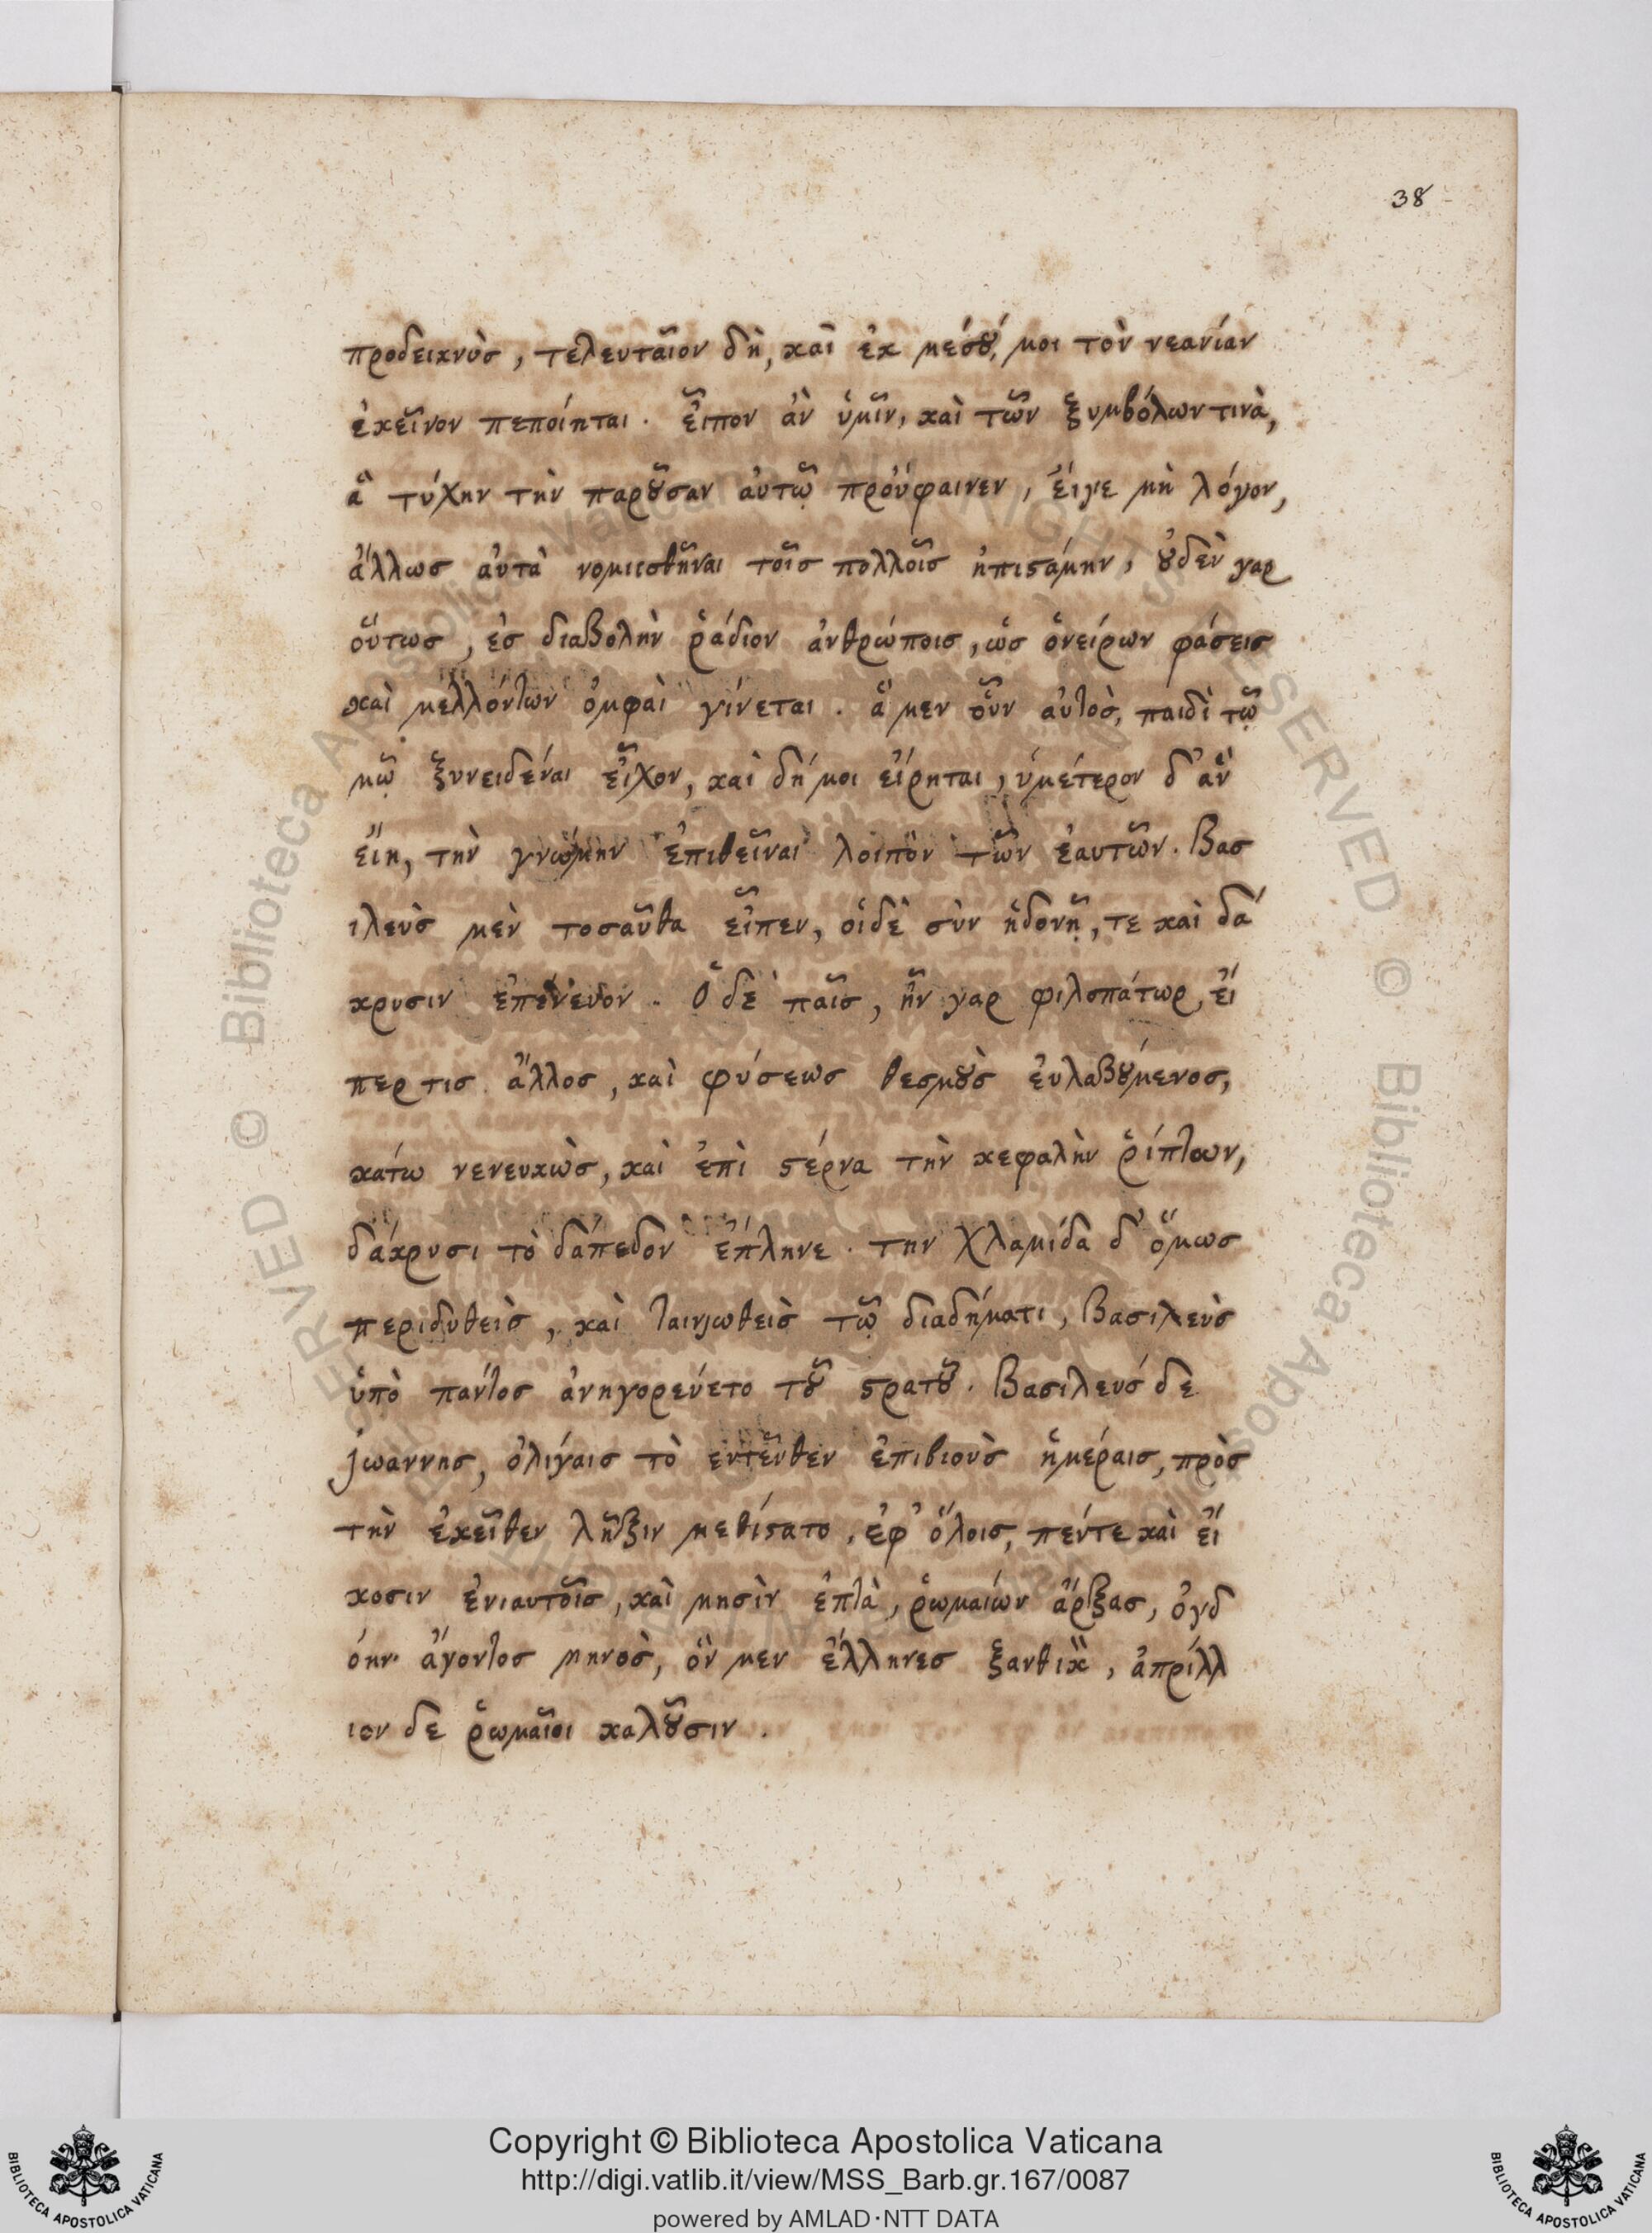 38
προδεικνὺς, τελευταῖον δὴ, καὶ ἐκ μέσȣ, μοι τὸν νεανίαν
ἐκεῖνον πεποίηται. εἶπον ἂν ὑμῖν, καὶ τῶν ξυμβόλων τινὰ,
ἃ τύχην τὴν παρȣ͂σαν αὐτῷ προὔφαινεν, εἴγε μὴ λόγον,
ἄλλως αὐτὰ νομισθῆναι τοῖς πολλοῖς ἠπιϛάμην, ȣ̓δὲν γαρ
οὕτως, ἐς διαβολὴν ῥάδιον ἀνθρώποις, ὡς ὀνείρων φάσεις
καὶ μελλόντων ὀμφαὶ γίνεται. ἃ μεν οὖν αὐτὸς, παιδὶ τῷ
μῷ ξυνειδέναι εἶχον, καὶ δή μοι εἴρηται, ὑμέτερον δ' ἂν
εἴη, τὴν γνώμην ἐπιθεῖναι λοιπὸν τῶν ἑαυτῶν. Βασ
ιλευὸς μὲν τοσαῦθα εἶπεν, οἱδὲ σὺν ἡδονῇ, τε καὶ δά
κρυσιν ἐπένευον. Ὁ δὲ παῖς, ἦν γαρ φιλοπάτωρ, εἴ
περ τις ἄλλος, καὶ φύσεως θεσμȣ̀ς εὐλαβȣ́μενος,
κάτω νενευκὼς, καὶ ἐπὶ ϛέρνα τὴν κεφαλὴν ῥίπτων,
δάκρυσι τὸ δάπεδον ἔπληνε. την χλαμίδα δ' ὅμως
περιδυθεὶς, καὶ ταινιωθεὶς τῷ διαδήματι, Βασιλεὺς
ὑπὸ παντὸς ἀνηγορεύετο τȣ͂ ϛρατȣ͂. Βασιλευς δὲ
Ἰωαννης, ὀλίγαις τὸ εντεῦθεν ἐπιβιοὺς ἡμέραις, πρὸς
τὴν ἐκεῖθεν λῆξιν μεθίϛατο, ἐφ' ὅλοις, πέντε καὶ εἴ
κοσιν ἐνιαυτοῖς, καὶ μησὶν ἑπτὰ, ῥωμαίων ἄρξας, ὀγδ
όην ἄγοντος μηνὸς, ὃν μεν ἕλληνες ξανθικȣ̀, ἀπρίλλ
ιον δε ῥωμαῖοι καλȣ͂σιν.
Copyright © Biblioteca Apostolica Vaticana
http://digi.vatlib.it/view/MSS_Barb.gr.167/0087
powered by AMLAD·NTT DATA